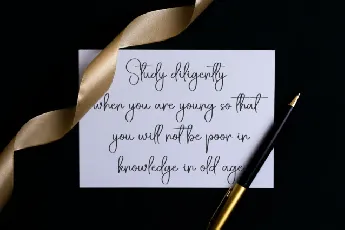 Study diligently
when you are young so that
you will not be poor in
knowledge in old age